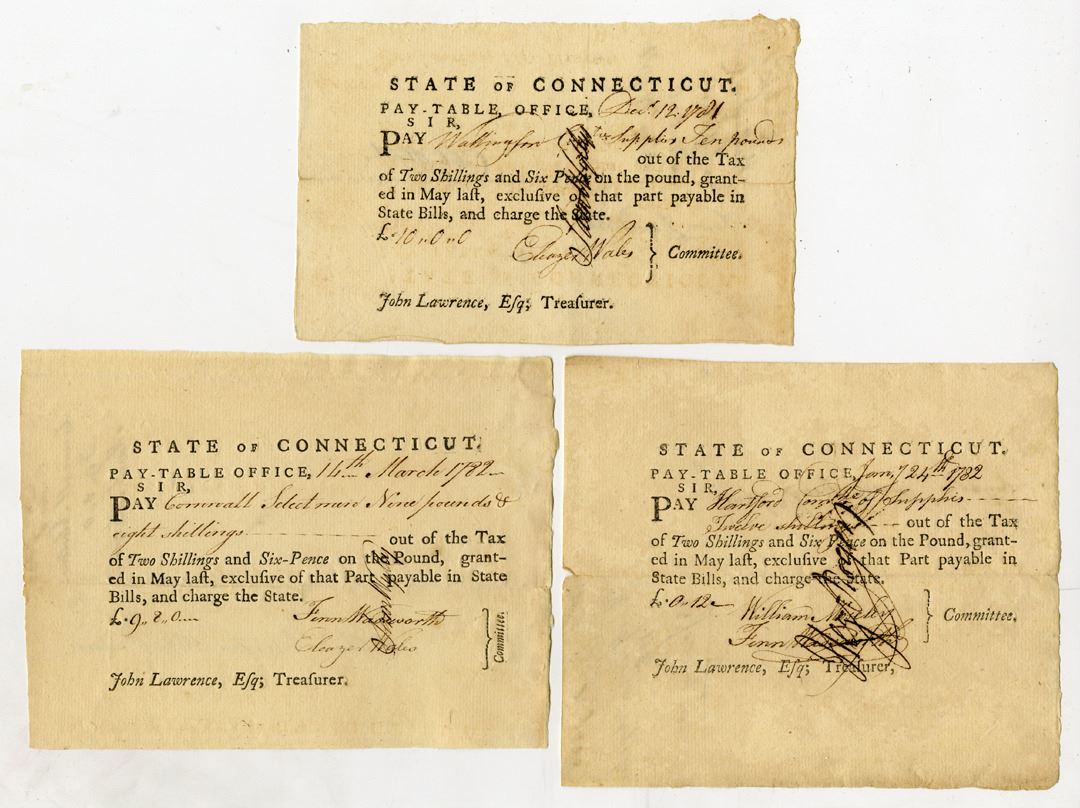 STATE OF CONNECTICUT.
PAY-TABLE OFFICE, Decr. 12. 1781
SIR,
PAY Wallingford Supplies Ten pounds
out of the Tax
of Two Shillings and Six Pence on the pound, grant-
ed in May laſt, exclusive of that part payable in
State Bills, and charge the State.
£. 10 " 0 " 0
Eleazer Wales } Committee.
John Lawrence, Eſq; Treaſurer.
STATE OF CONNECTICUT.
PAY-TABLE OFFICE, 14th March 1782
SIR,
PAY Cornwall Select men Nine pounds &
eight shillings out of the Tax
of Two Shillings and Six-Pence on the Pound, grant-
ed in May laſt, exclusive of that Part payable in State
Bills, and charge the State.
£. 9 " 8 " 0
Fenn Wadsworth
Eleazer Wales
} Committee.
John Lawrence, Eſq; Treaſurer.
STATE OF CONNECTICUT.
PAY-TABLE OFFICE, Jany 24th 1782
SIR,
PAY Hartford Comtee of Supplies
Twelve shillings out of the Tax
of Two Shillings and Six Pence on the Pound, grant-
ed in May laſt, exclusive of that Part payable in
State Bills, and charge the State.
£. 0 " 12
William Moseley
Fenn Wadsworth
} Committee.
John Lawrence, Eſq; Treaſurer,